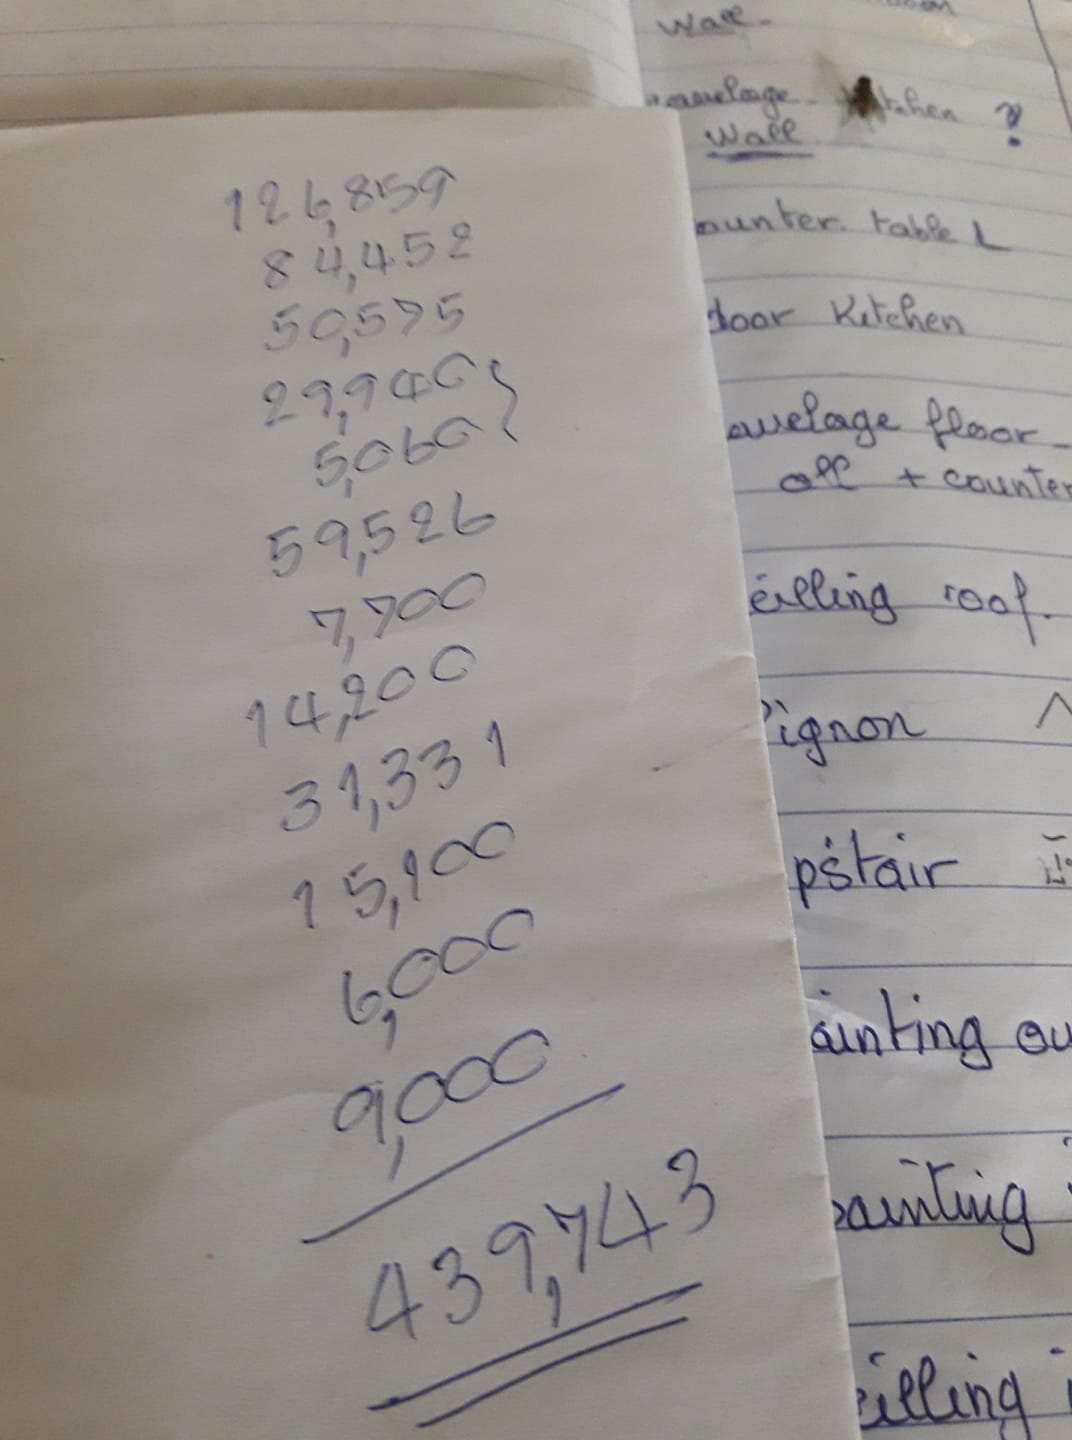 126,859
84,452
50,575
29,940
5,060
59,526
7,700
14,200
31,331
15,100
6,000
9,000
439,743
Wall-
Wall
ounter table L
door Kitchen
avelage floor-
all + counter
eilling roof.
Pignon
pstair
ainting ou
painting
eilling i